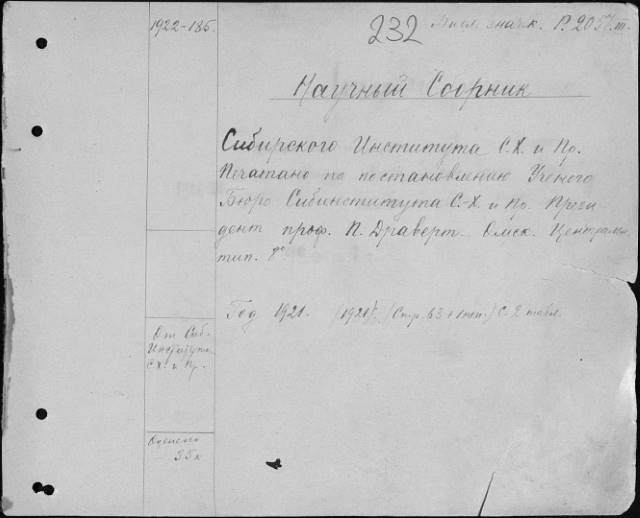 1922-185.
232
Р. 205
Научный Сборник
Сибирского Института С.Х. и Пр.
Печатано по постановлению Ученого
Бюро Сибинститута С.-Х. и Пр. Прези-
дент проф. П. Драверт. Омск. Централь.
тип. 8°
Год 1921. (1921). (Стр. 63 + 1 нен.) С 2 табл.
От Сиб.
Института
С.Х. и Пр.
Оценено
35 к